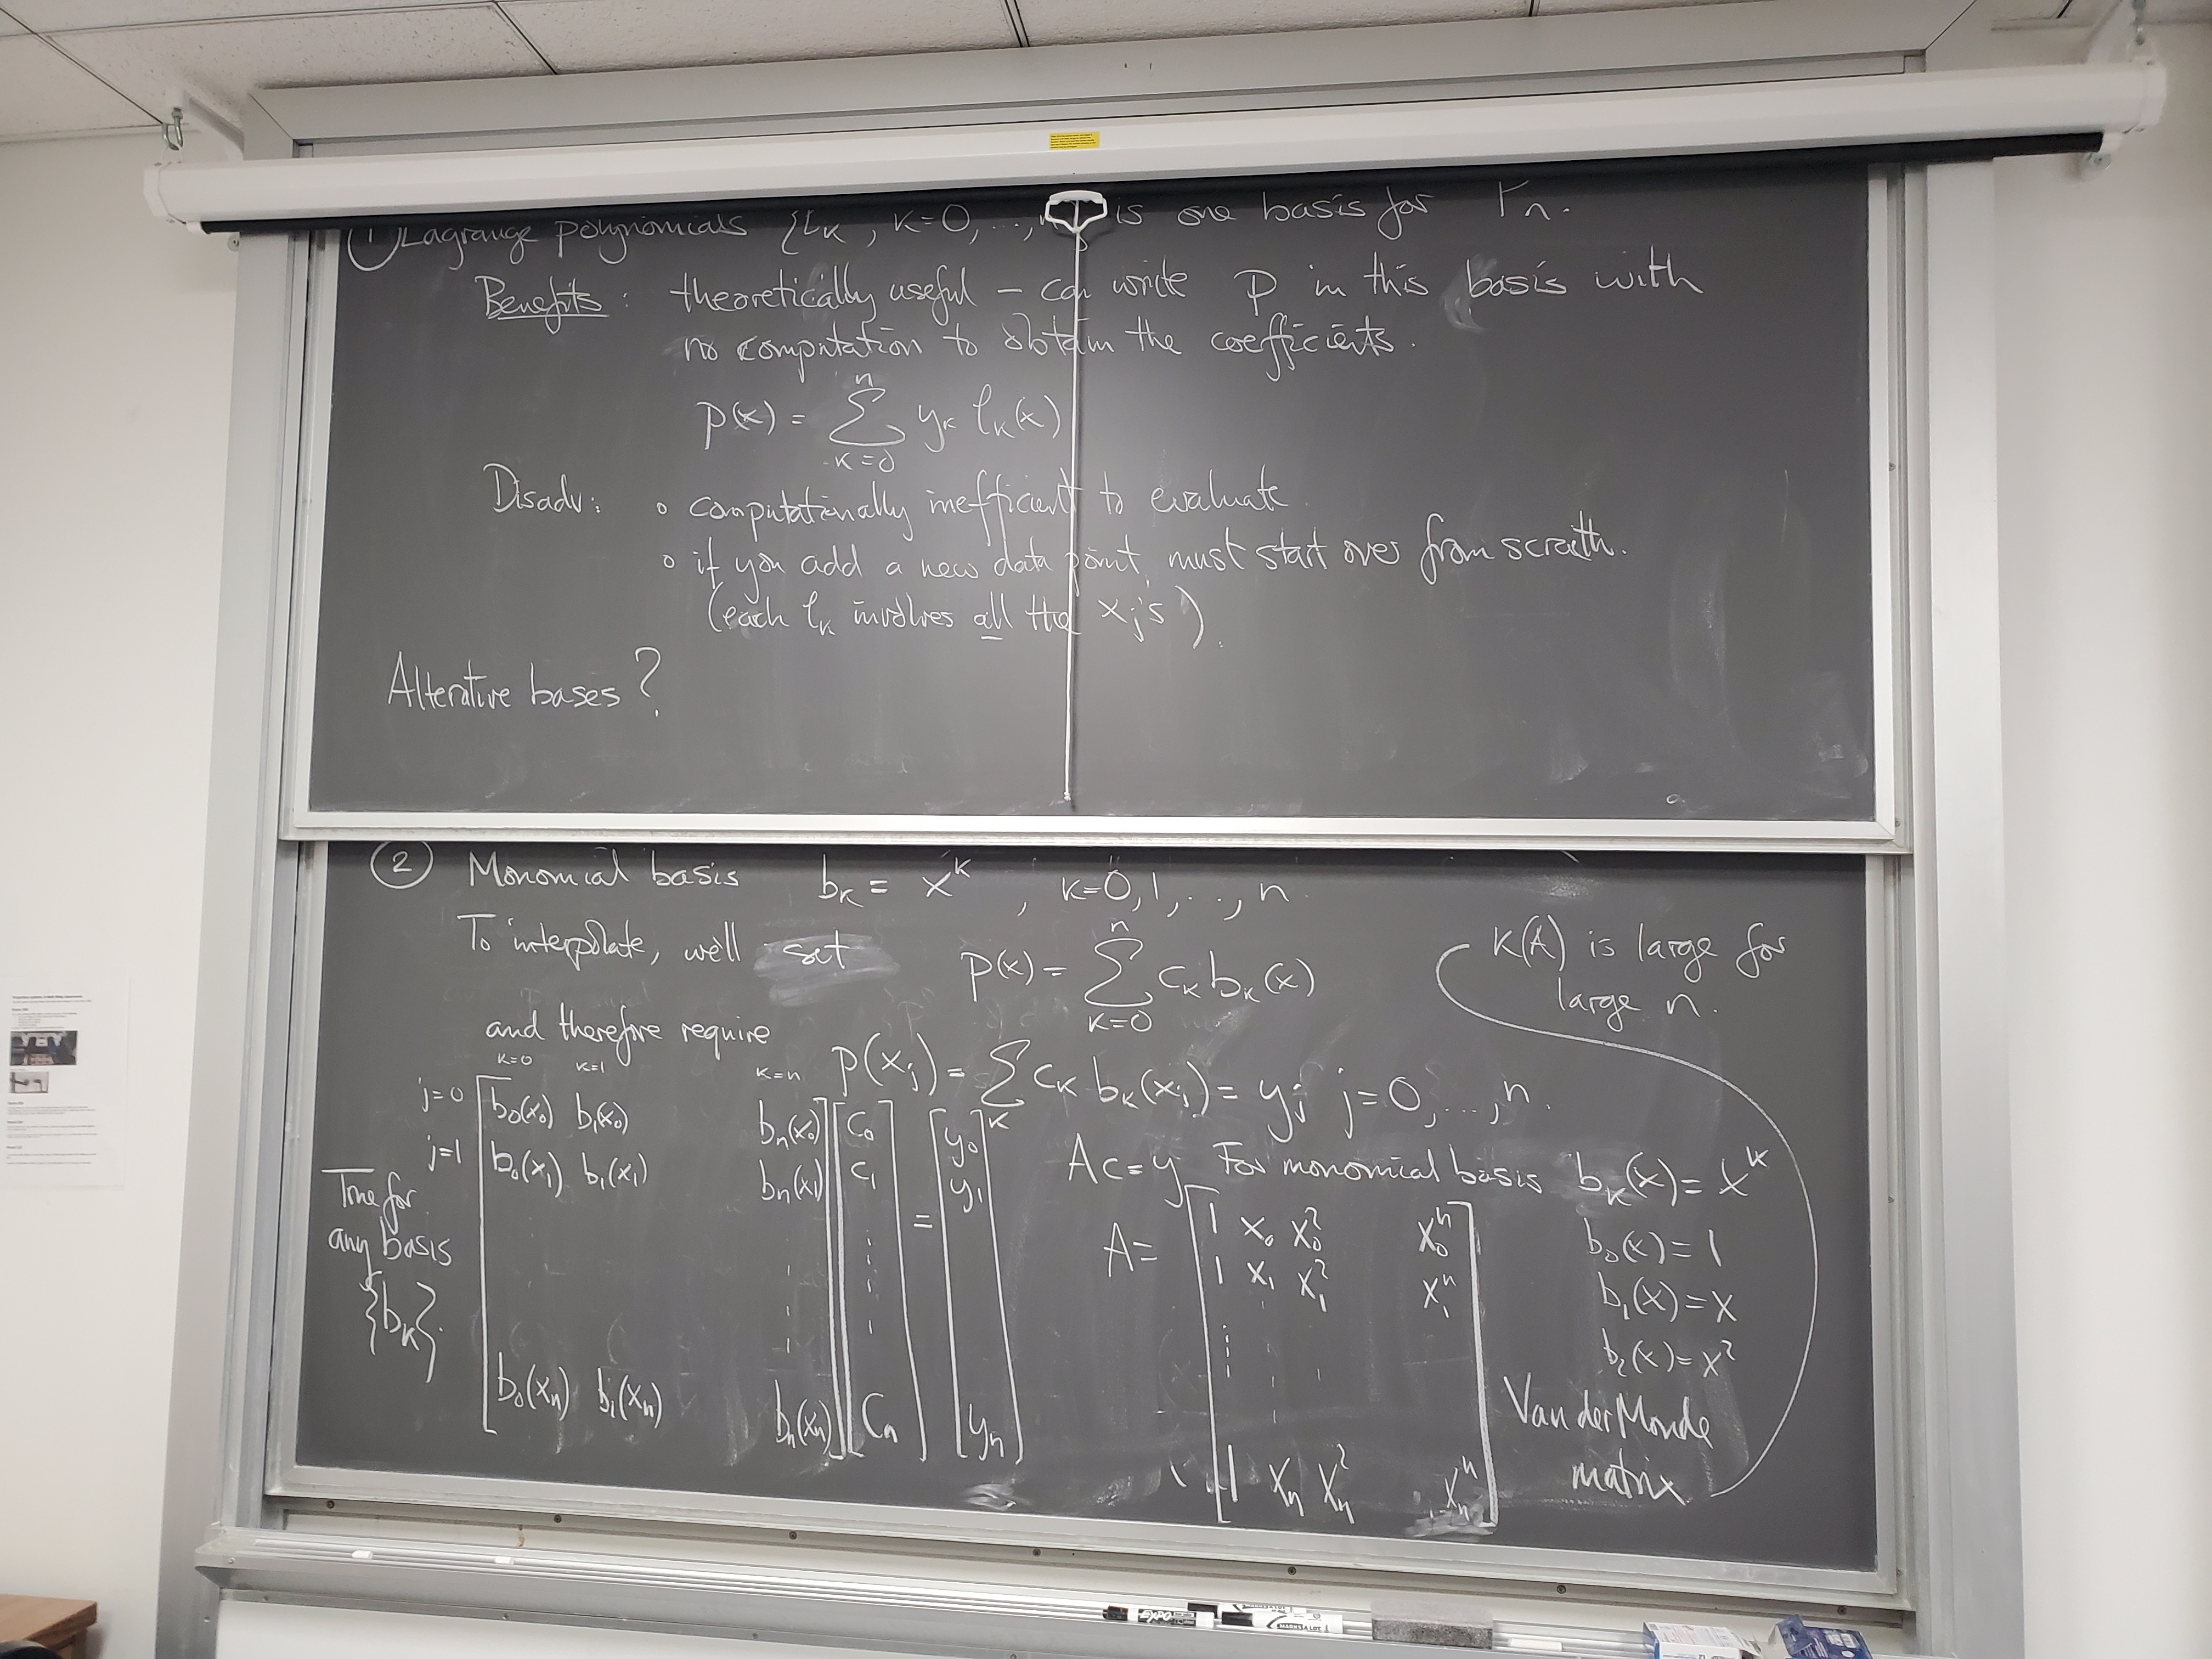 ① Lagrange polynomials {l_k, k=0,..., } is one basis for P_n.
Benefits: theoretically useful – can write p in this basis with
no computation to obtain the coefficients.
p(x) = Σ_{k=0}^{n} y_k l_k(x)
Disadv: ∘ computationally inefficient to evaluate
∘ if you add a new data point, must start over from scratth.
(each l_k involves all the x_j's).
Alterative bases?
② Monomial basis b_k = x^k, k=0,1,...,n.
To interpolate, we'll set p(x) = Σ_{k=0}^{n} c_k b_k(x)
K(A) is large for
large n.
and therefore require p(x_j) = Σ_k c_k b_k(x_j) = y_j j=0,...,n.
k=0 k=1 k=n
j=0 b_0(x_0) b_1(x_0) b_n(x_0) c_0 y_0
j=1 b_0(x_1) b_1(x_1) b_n(x_1) c_1 = y_1
b_0(x_n) b_1(x_n) b_n(x_n) c_n y_n
True for
any basis
{b_k}.
Ac=y For monomial basis b_k(x) = x^k
A= 1 x_0 x_0^2 x_0^n
1 x_1 x_1^2 x_1^n
1 x_n x_n^2 x_n^n
b_0(x)=1
b_1(x)=x
b_2(x)=x^2
Van der Monde
matrix
EXPO
MARKS A LOT